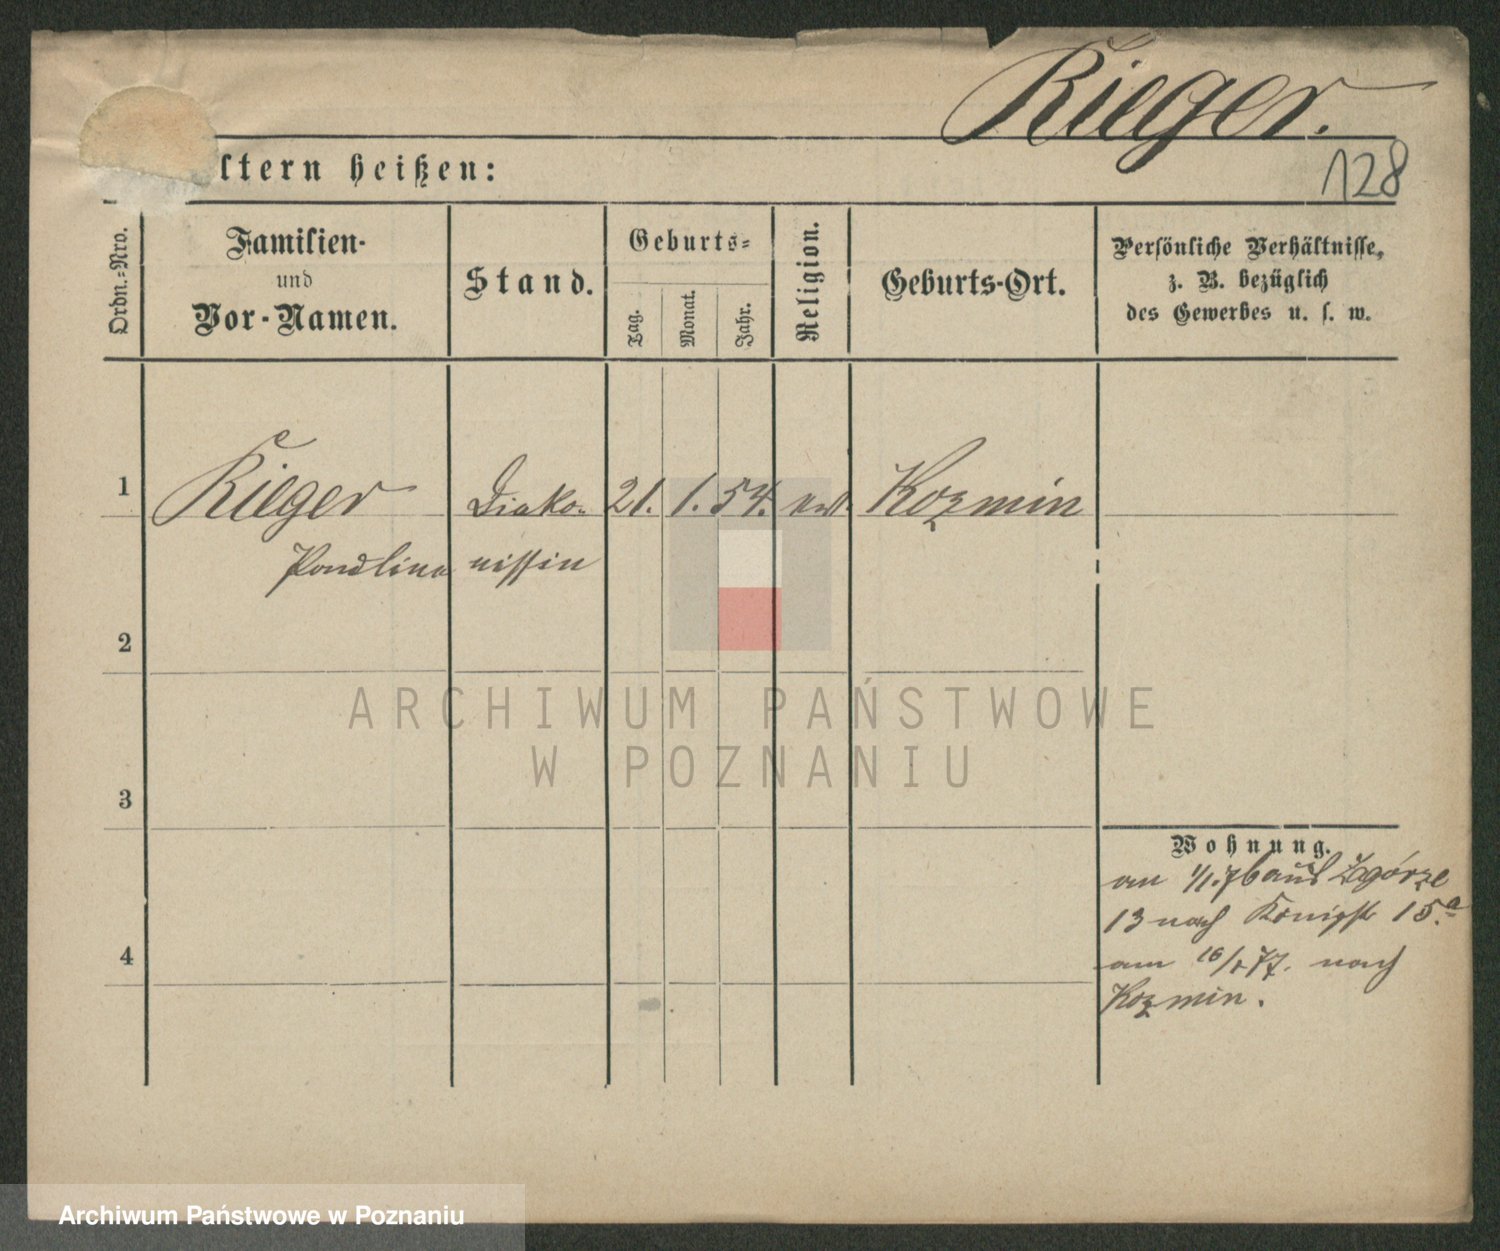 Rieger.
128
ltern heißen:
Ordn.-Nro.
Familien-
und
Vor-Namen.
Stand.
Geburts-
Tag.
Monat.
Jahr.
Religion.
Geburts-Ort.
Persönliche Verhältnisse,
z. B. bezüglich
des Gewerbes u. s. w.
1
Rieger
Diako-
21.
1.
54.
Kozmin
nissin
2
3
4
Wohnung.
am 1/1.76 aus Zagórze
13 nach Königsstr 15a
am 16/ 77. nach
Kozmin.
ARCHIWUM PAŃSTWOWE
W POZNANIU
Archiwum Państwowe w Poznaniu